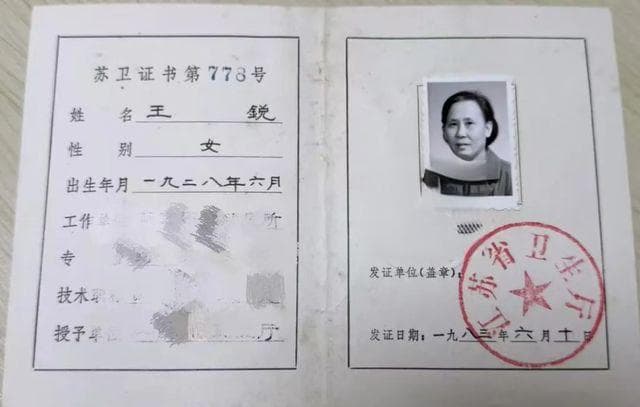 苏卫证书第778号
姓名 王 锐
性别 女
出生年月 一九二八年六月
工作单 所
专
技术职
授予单位 厅
江苏省卫生厅
发证单位(盖章):
发证日期: 一九八三年六月十日